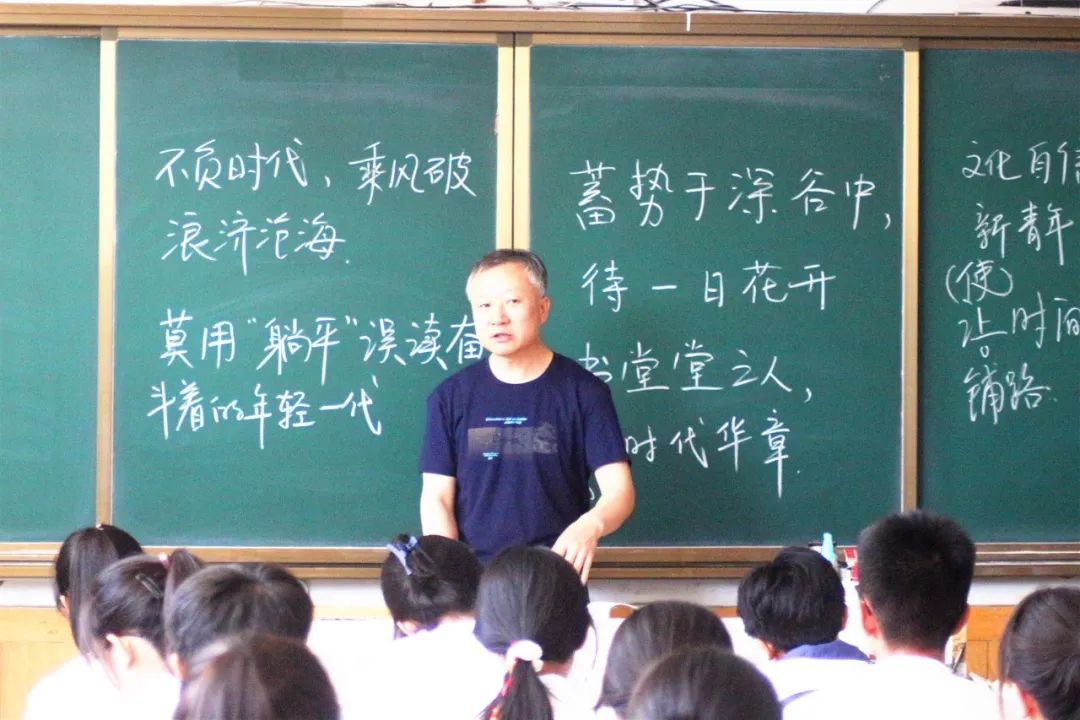 不负时代，乘风破
浪济沧海.
莫用"躺平"误读奋
斗着的年轻一代
蓄势于深谷中，
待一日花开
书堂堂之人，
时代华章.
文化自信
新青年
(使)
让时间
铺路.